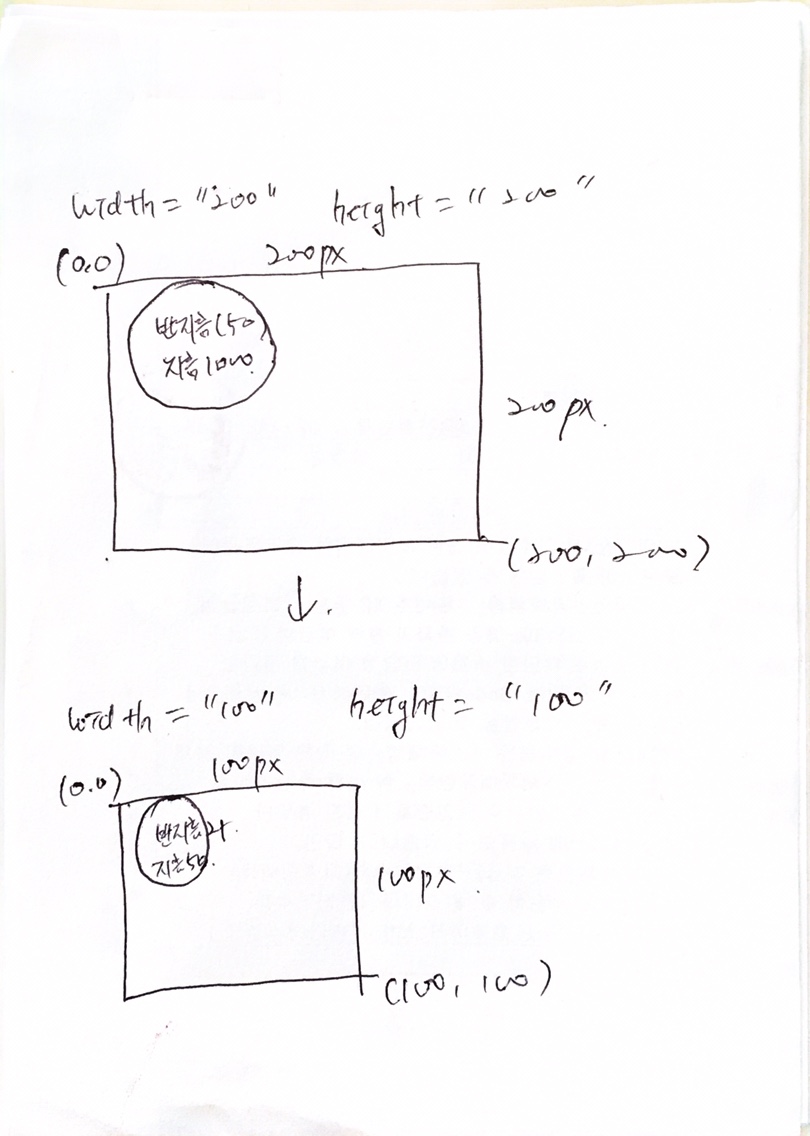 width = "200" height = "200"
(0.0) 200px
반지름(50)
지름100
200px.
(200, 200)
width = "100" height = "100"
(0.0) 100px
반지름
지름50.
100px.
(100, 100)